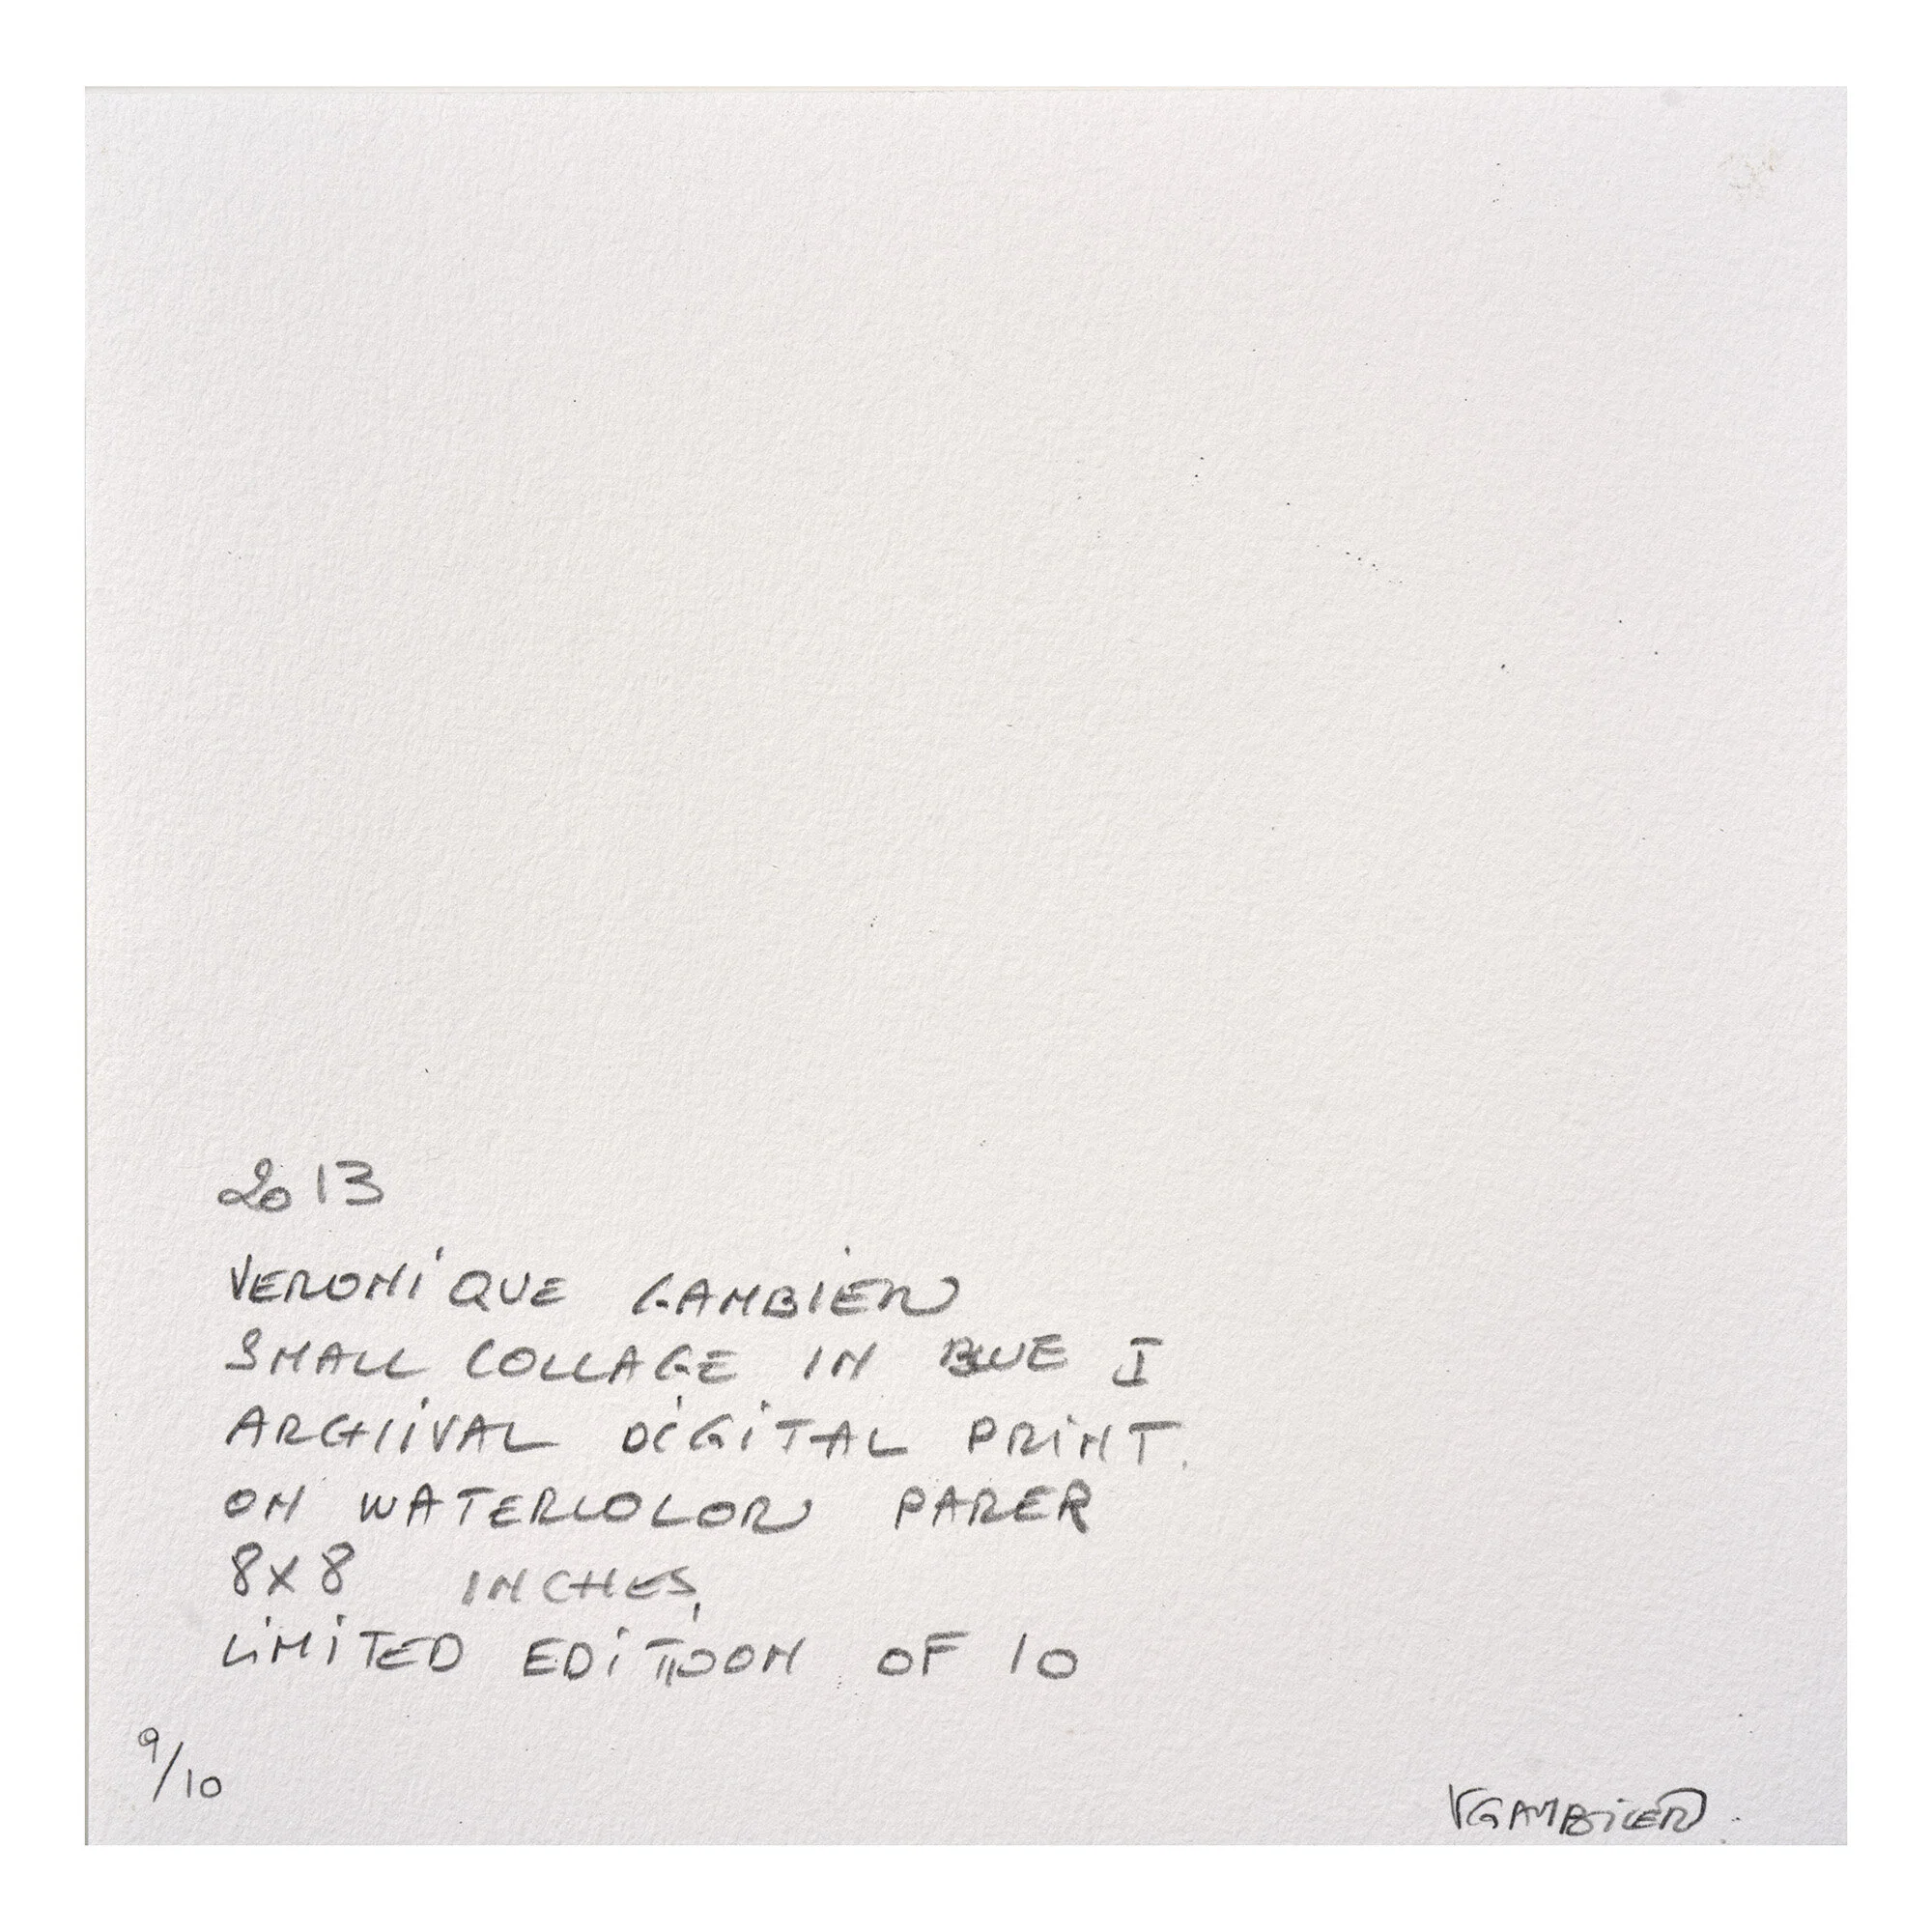 2013
VERONiQUE GAMBIER
SMALL COLLAGE IN BLUE I
ARCHIVAL DIGITAL PRINT.
ON WATERCOLOR PAPER
8x8 INCHES,
LIMITED EDITION OF 10
9/10
VGAMBIER